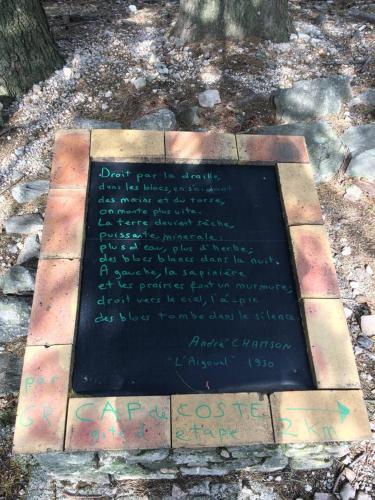 Droit par la draille,
dans les blocs, en s'aidant
des mains et du torse,
on monte plus vite.
La terre devient sèche,
puissante, minérale:
plus d'eau, plus d'herbe;
des blocs blancs dans la nuit.
A gauche, la sapinière
et les prairies font un murmure;
droit vers le ciel, l'à-pic
des blocs tombe dans le silence.
André CHAMSON
"L'Aigoual" 1930
par CAP de COSTE
GR gîte d'étape 2 km